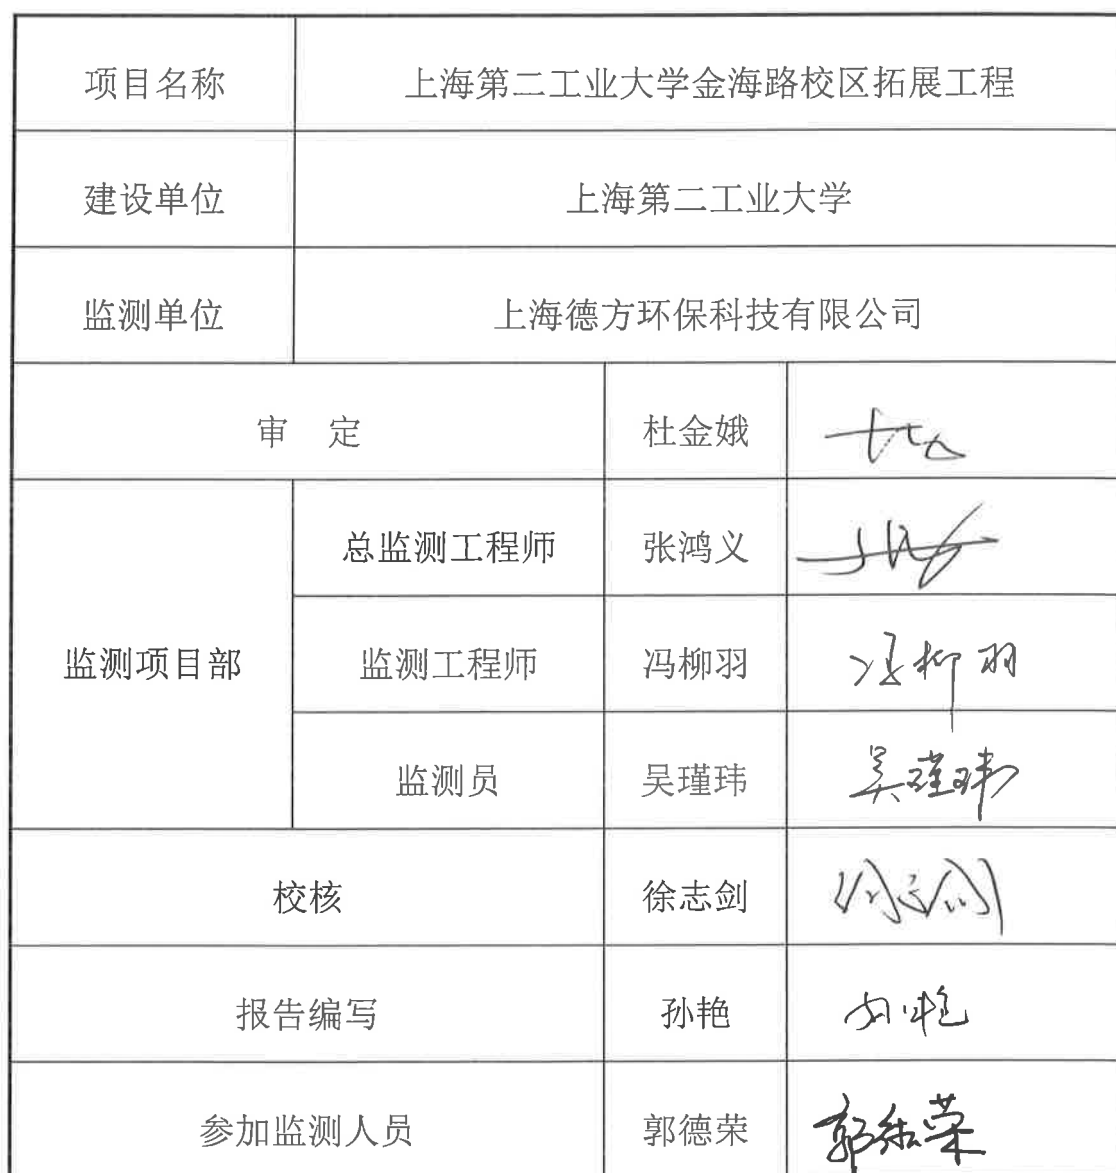 项目名称 上海第二工业大学金海路校区拓展工程
建设单位 上海第二工业大学
监测单位 上海德方环保科技有限公司
审 定 杜金娥
总监测工程师 张鸿义
监测项目部 监测工程师 冯柳羽 冯柳羽
监测员 吴瑾玮 吴瑾玮
校核 徐志剑 徐志剑
报告编写 孙艳 孙艳
参加监测人员 郭德荣 郭德荣